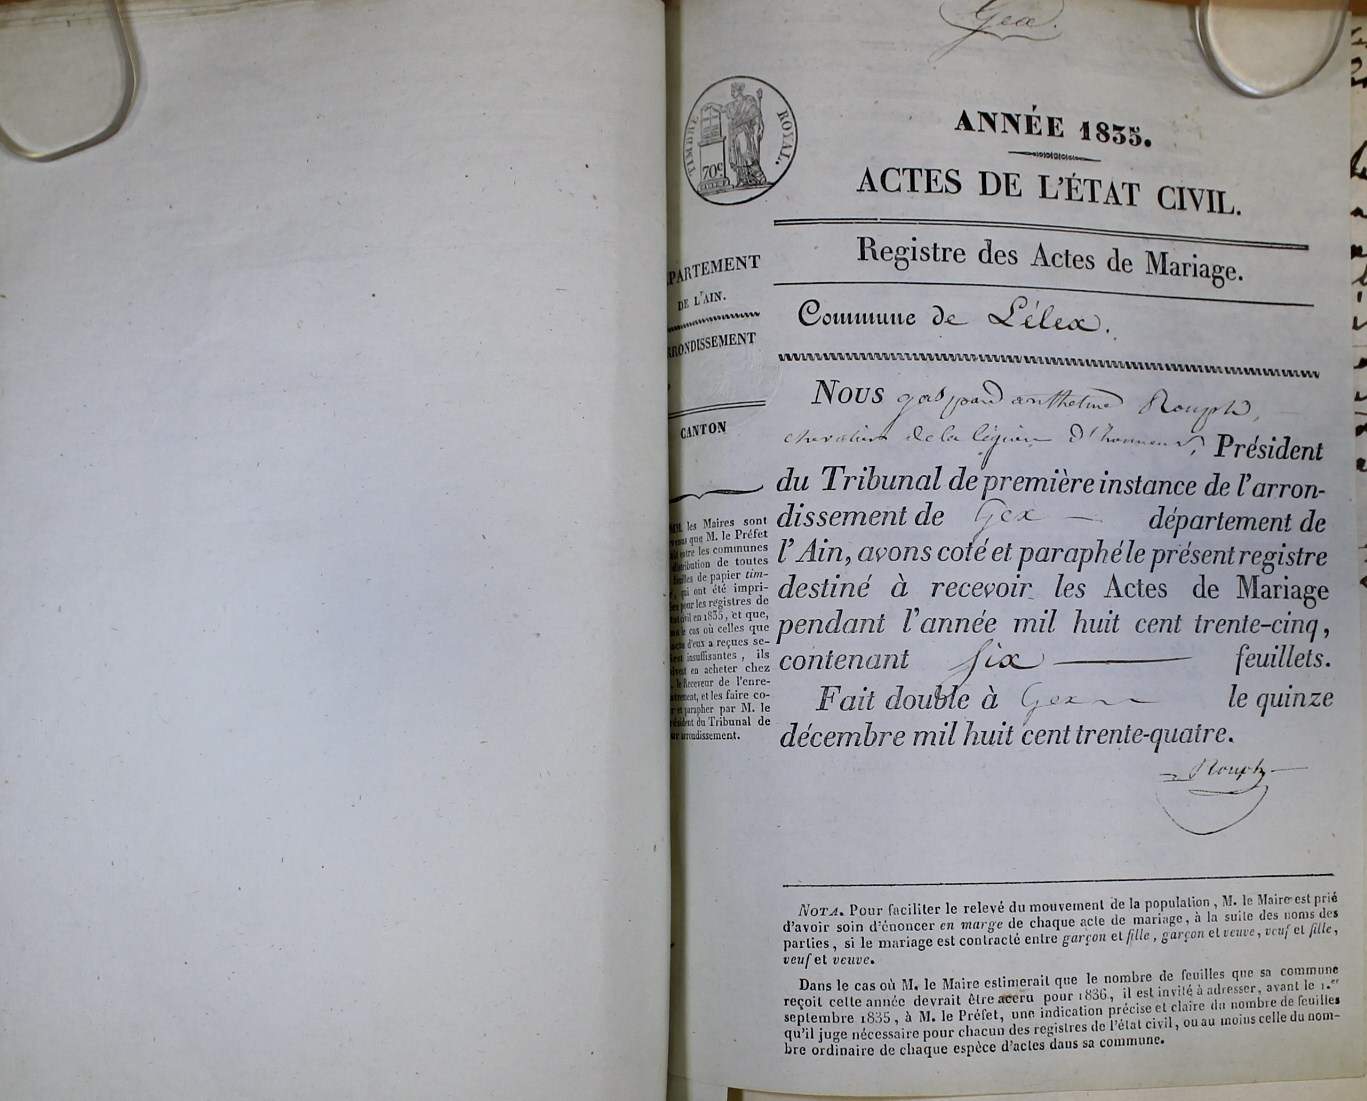 Gex.
TIMBRE ROYAL.
70c
ANNÉE 1835.
ACTES DE L'ÉTAT CIVIL.
Registre des Actes de Mariage.
PARTEMENT
DE L'AIN.
RONDISSEMENT
CANTON
MM. les Maires sont
que M. le Préfet
entre les communes
distribution de toutes
feuilles de papier tim-
qui ont été impri-
pour les régistres de
civil en 1835, et que,
le cas où celles que
d'eux a reçues se-
insuffisantes, ils
en acheter chez
le Receveur de l'enre-
, et les faire co-
parapher par M. le
du Tribunal de
arrondissement.
Commune de Lélex.
Nous gaspard anthelme Rouph,
chevalier de la légion d'honneur, Président
du Tribunal de première instance de l'arron-
dissement de Gex département de
l'Ain, avons coté et paraphé le présent registre
destiné à recevoir les Actes de Mariage
pendant l'année mil huit cent trente-cinq,
contenant six feuillets.
Fait double à Gex le quinze
décembre mil huit cent trente-quatre.
Rouph
NOTA. Pour faciliter le relevé du mouvement de la population, M. le Maire est prié
d'avoir soin d'énoncer en marge de chaque acte de mariage, à la suite des noms des
parties, si le mariage est contracté entre garçon et fille, garçon et veuve, veuf et fille,
veuf et veuve.
Dans le cas où M. le Maire estimerait que le nombre de feuilles que sa commune
reçoit cette année devrait être accru pour 1836, il est invité à adresser, avant le 1.er
septembre 1835, à M. le Préfet, une indication précise et claire du nombre de feuilles
qu'il juge nécessaire pour chacun des registres de l'état civil, ou au moins celle du nom-
bre ordinaire de chaque espèce d'actes dans sa commune.